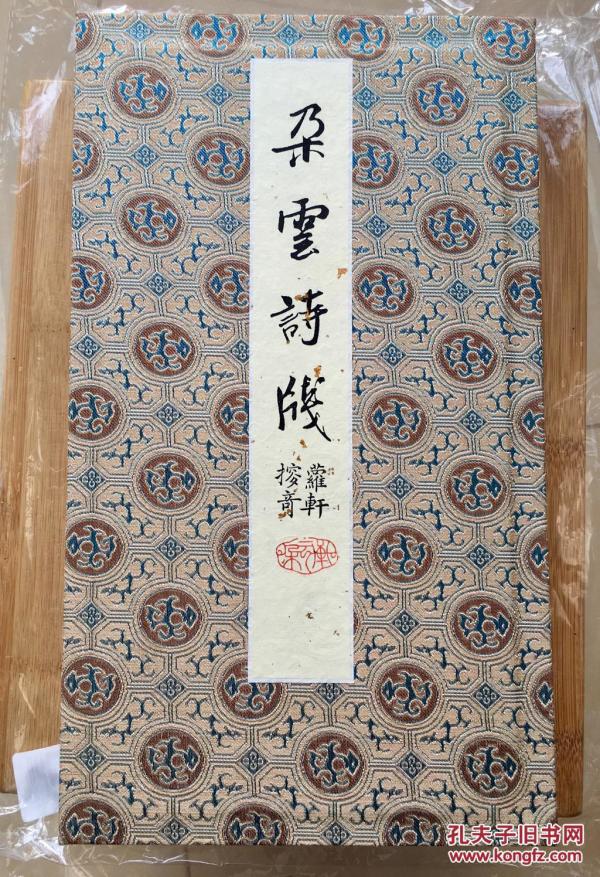 朵雲詩牋
蘿軒
搜奇
孔夫子旧书网
www.kongfz.com